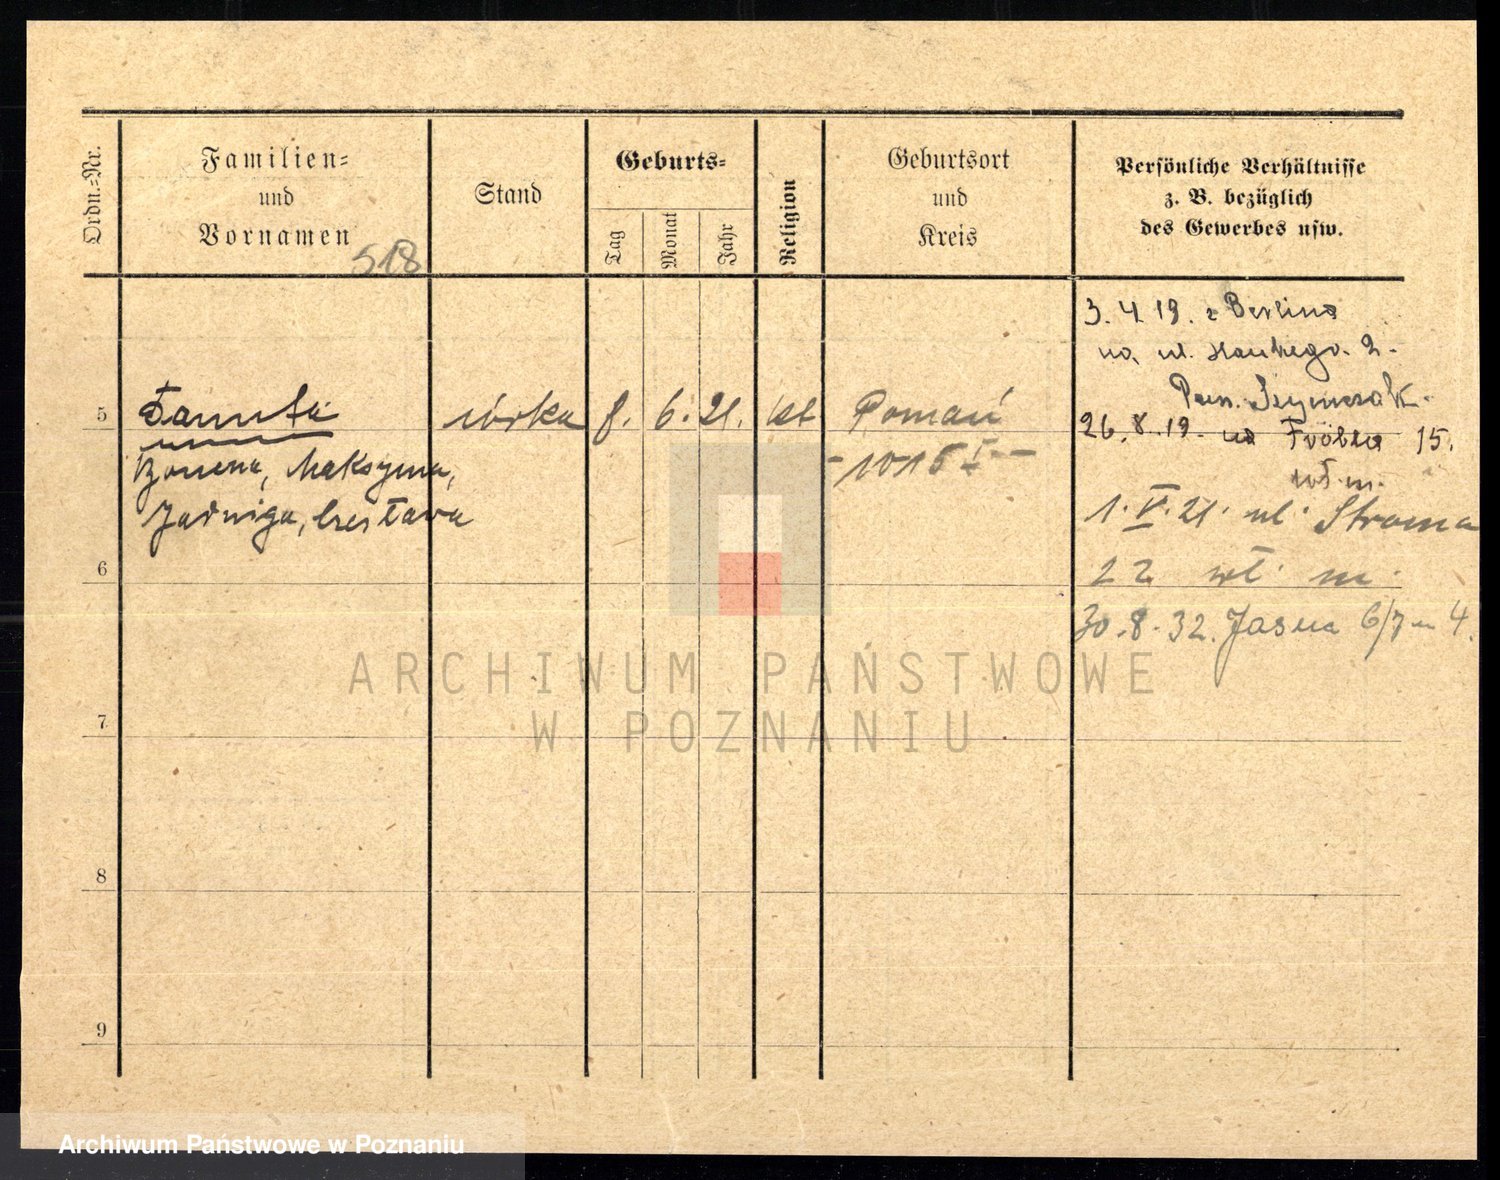 Ordn.-Nr.
Familien-
und
Vornamen
518
Stand
Geburts-
Tag
Monat
Jahr
Religion
Geburtsort
und
Kreis
Persönliche Verhältnisse
z. B. bezüglich
des Gewerbes usw.
3. 4. 19. z Berlina
na ul.
2.
26. 8. 19. na Fröbla 15.
wł. m.
1. V. 21. ul. Stroma
22 wł. m.
30. 8. 32. Jasna 6/7 m 4.
5
Danuta
córka
8. 6. 21. kat
Poznań
Bożena, Maksyma,
Jadwiga, Czesława
6
7
8
9
ARCHIWUM PAŃSTWOWE
W POZNANIU
Archiwum Państwowe w Poznaniu